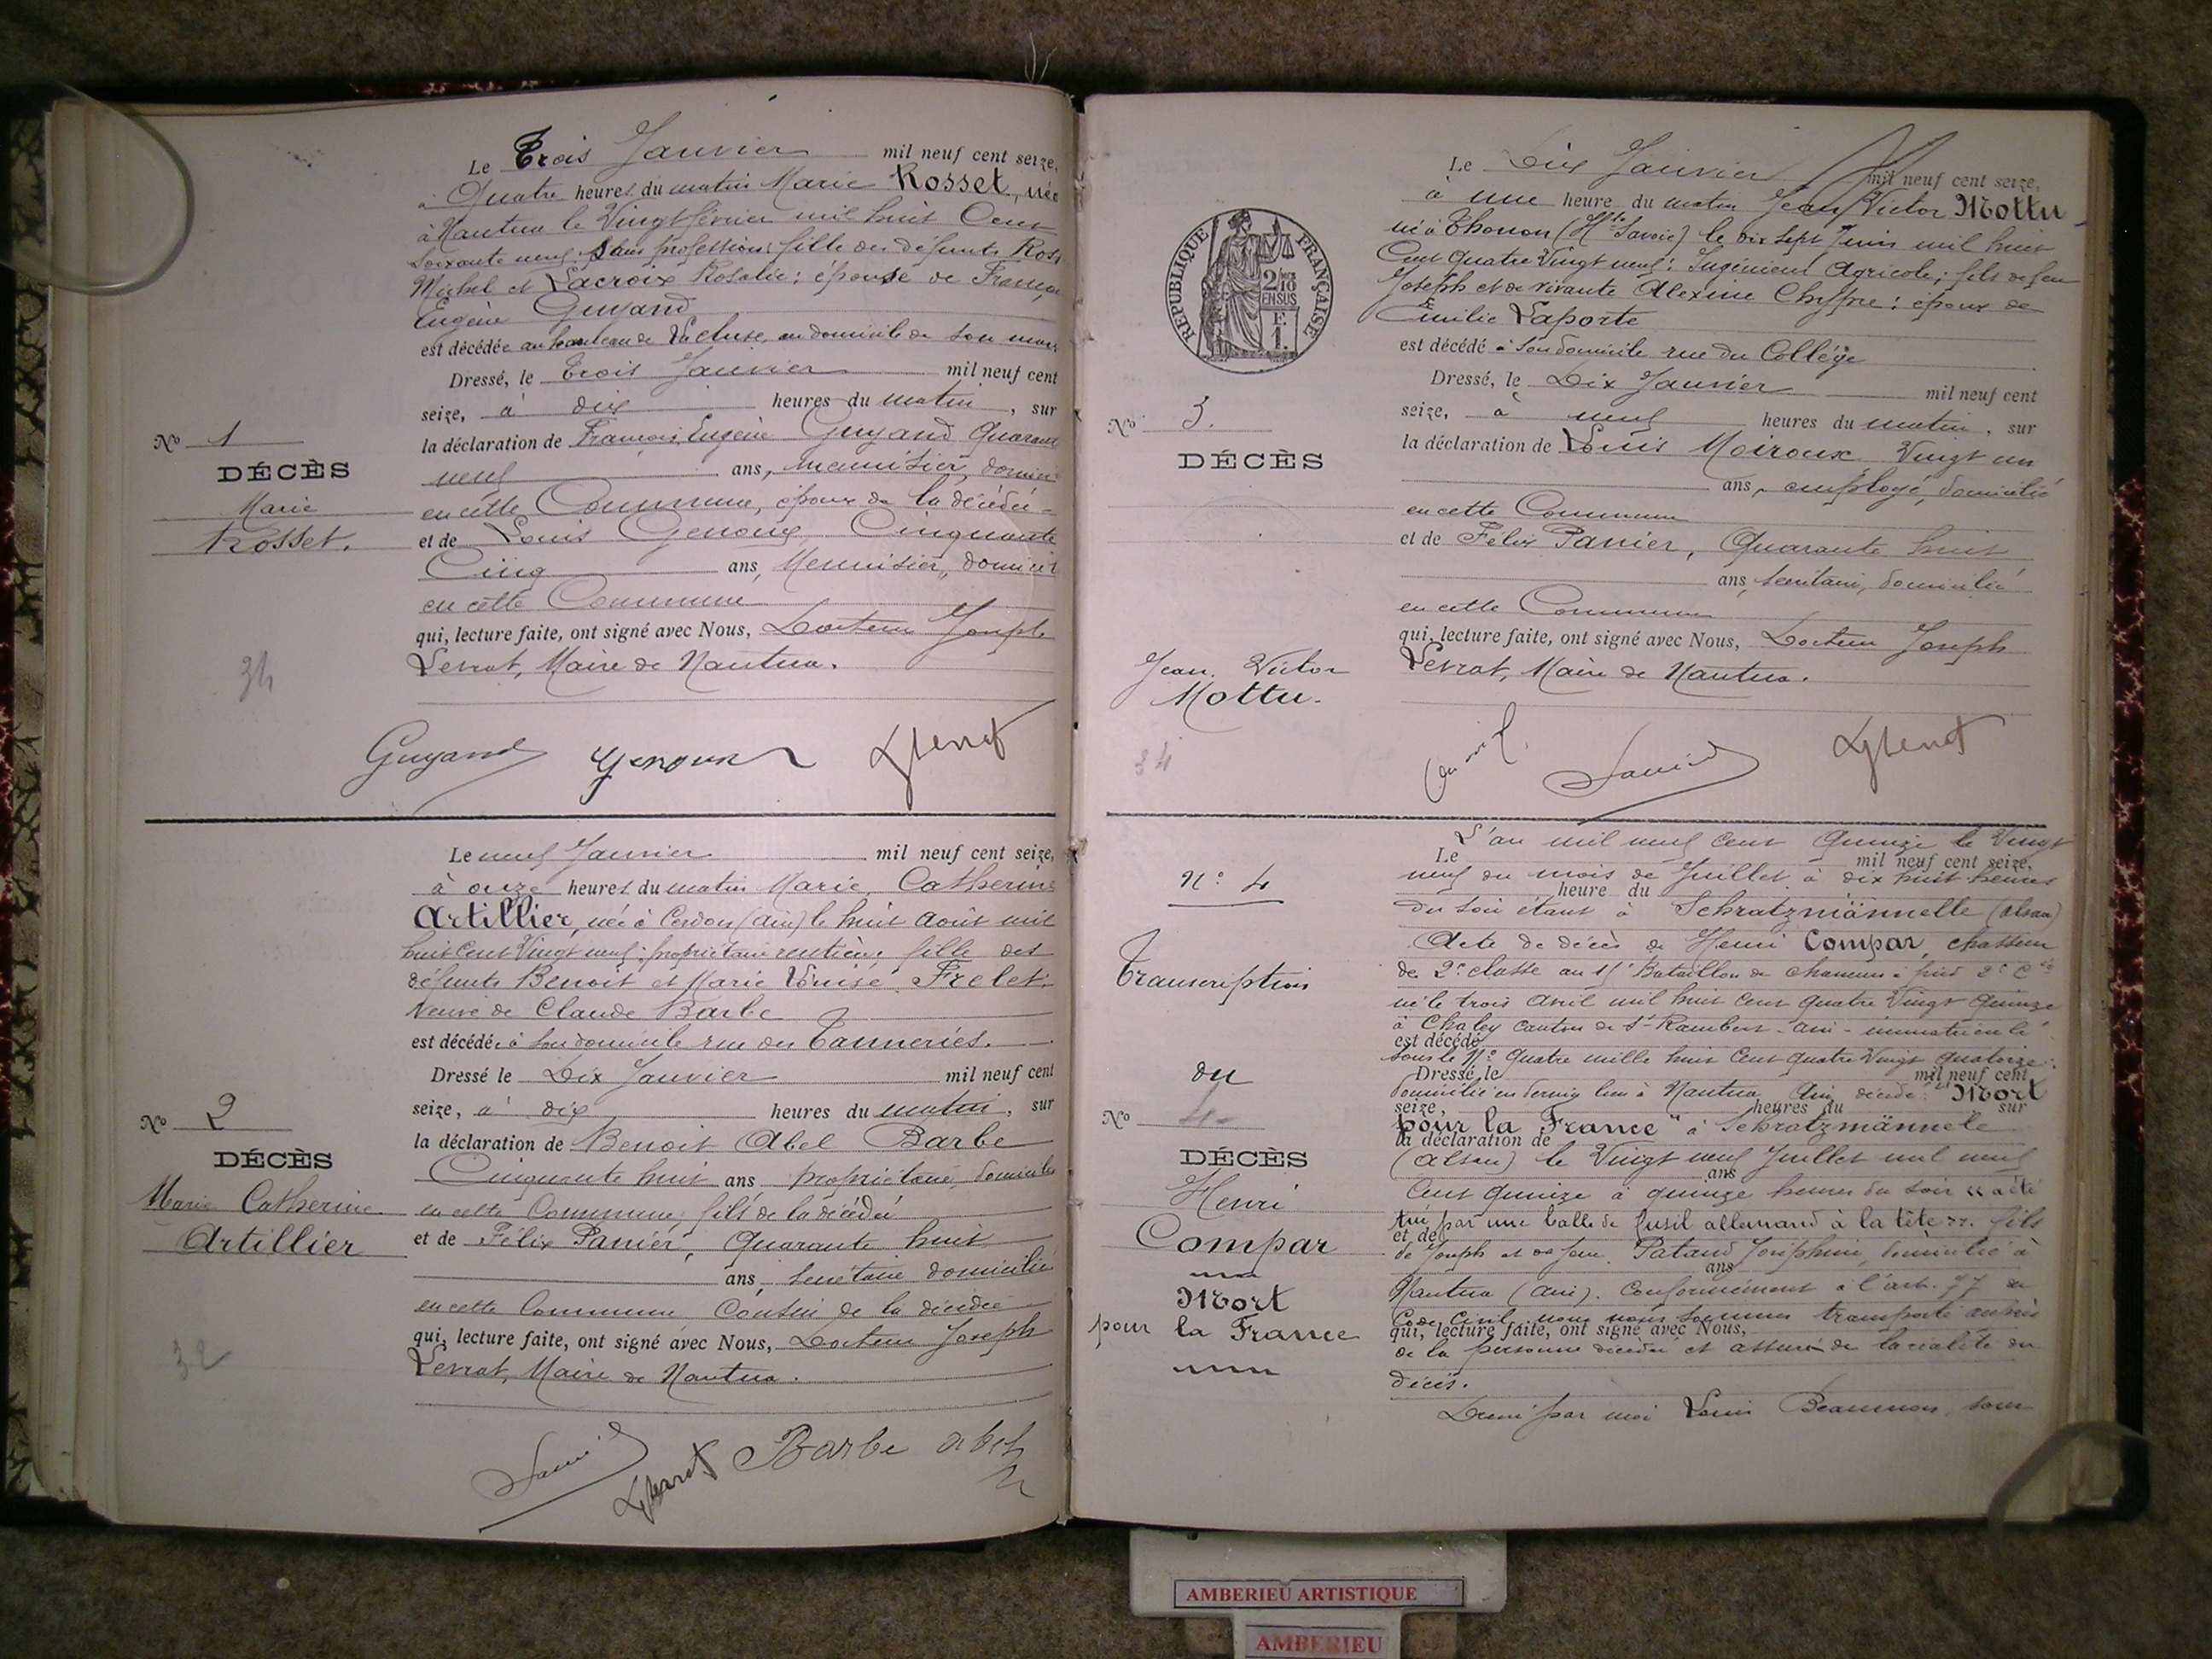 Le Trois Janvier mil neuf cent seize,
à Quatre heures du matin Marie Rosset, née
à Nantua le Vingt février mil huit Cent
soixante neuf. Sans profession; fille des défunts Ross
Michel et Lacroix Rosalie; épouse de François
Eugène Guyand
est décédée au hameau de Lacluse, au domicile de son mari
Dressé, le Trois Janvier mil neuf cent
seize, à dix heures du matin, sur
la déclaration de François Eugène Guyand Quarante
neuf ans, menuisier, domicilié
en cette Commune, époux de la décédée
et de Louis Genoux Cinquante
Cinq ans, Menuisier, domicilié
en cette Commune
qui, lecture faite, ont signé avec Nous, Docteur Joseph
Levrat, Maire de Nantua.
Nº 1
DÉCÈS
Marie
Rosset.
34
Guyand Genoux
Le neuf Janvier mil neuf cent seize,
à onze heures du matin Marie, Catherine
Artillier, née à Cerdon (Ain) le huit août mil
huit Cent Vingt neuf; propriétaire rentière; fille des
défunts Benoît et Marie Louise Frelet;
Veuve de Claude Barbe
est décédée à son domicile rue des Tanneries.
Dressé le Dix Janvier mil neuf cent
seize, à dix heures du matin, sur
la déclaration de Benoit Abel Barbe
Cinquante huit ans propriétaire, domicilié
en cette Commune, fils de la décédée
et de Félix Panier, Quarante huit
ans, secrétaire domicilié
en cette Commune, Cousin de la décédée
qui, lecture faite, ont signé avec Nous, Docteur Joseph
Levrat, Maire de Nantua.
Nº 2
DÉCÈS
Marie Catherine
Artillier
32
Barbe abel
Le Dix Janvier mil neuf cent seize,
à une heure du matin Jean Victor Mottu
né à Thonon (Hte Savoie) le dix sept Juin mil huit
Cent Quatre Vingt neuf; Ingénieur Agricole; fils de feu
Joseph et de vivante Alexine Chyfre; époux de
Emilie Laporte
est décédé à son domicile rue du Collège
Dressé, le Dix Janvier mil neuf cent
seize, à neuf heures du matin, sur
la déclaration de Louis Moiroux Vingt un
ans, employé, domicilié
en cette Commune
et de Félix Panier, Quarante huit
ans, secrétaire, domicilié
en cette Commune
qui, lecture faite, ont signé avec Nous, Docteur Joseph
Levrat, Maire de Nantua.
RÉPUBLIQUE FRANÇAISE
2/10 EN SUS
F.
1.
Nº 3.
DÉCÈS
Jean Victor
Mottu.
34
L'an mil neuf cent Quinze le Vingt
Le mil neuf cent seize,
neuf du mois de Juillet à dix huit heures
heure du
du soir étant à Schratzmännelle (Alsace)
Acte de décès de Henri Compar, chasseur
de 2e classe au 11e Bataillon de chasseurs à pied 2e Cie
né le trois avril mil huit Cent quatre Vingt Quinze
à Chaley canton de St-Rambert - Ain - immatriculé
est décédé
sous le Nº Quatre mille huit Cent quatre Vingt quatorze
Dressé, le mil neuf cent
domicilié en dernier lieu à Nantua, Ain, décédé "Mort
seize, heures du sur
pour la France" à Schratzmännele
la déclaration de
(Alsace) le Vingt neuf Juillet mil neuf
ans
Cent Quinze à quinze heures du soir «a été
tué par une balle de fusil allemand à la tête». fils
et de
de Joseph et de feue Pataud Joséphine, domicilié à
ans
Nantua (Ain). Conformément à l'art. 77 du
Code Civil, nous nous sommes transporté auprès
qui, lecture faite, ont signé avec Nous,
de la personne décédée et assuré de la réalité du
décès.
Dressé par moi Louis Beaumon, sous
Nº 4
Transcription
du
Nº 4
DÉCÈS
Henri
Compar
Mort
pour la France
AMBERIEU ARTISTIQUE
AMBERIEU